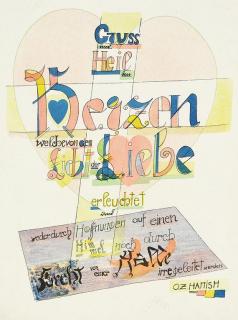 Gruss
und
Heil
den
Herzen
welche von dem
Licht der Liebe
erleuchtet
und
weder durch Hoffnungen auf einen
Himmel noch durch
Furcht vor einer Hölle
irregeleitet werden
O.Z. HANISH